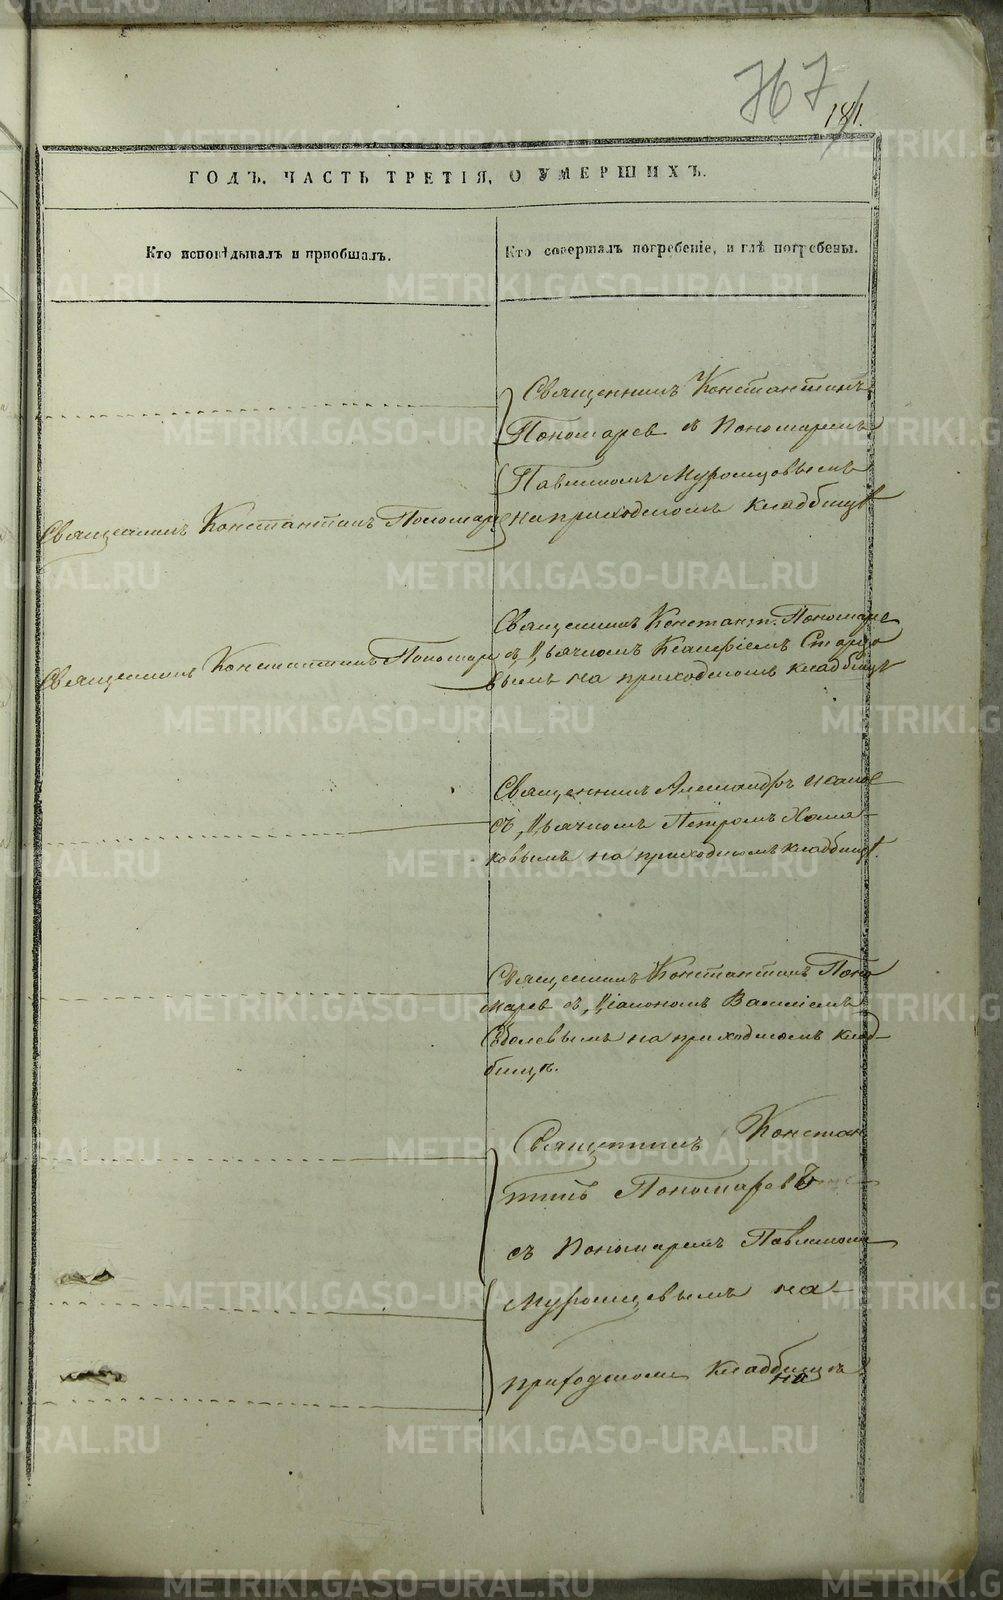 767
181.
ГОДЪ. ЧАСТЬ ТРЕТІЯ, О УМЕРШИХЪ.
Кто исповѣдывалъ и пріобщалъ.
Кто совершалъ погребеніе, и гдѣ погребены.
Священникъ Константинъ
Пономарев съ Пономаремъ
Павлиномъ Муромцовымъ
на приходскомъ кладбищѣ
Священникъ Константинъ Пономаре
Священникъ Констант. Пономаре
съ Дьячкомъ Ксанфіемъ
вымъ на приходскомъ кладбищѣ
Священникъ Константинъ Пономаре
Священникъ Александръ
съ Дьячкомъ Петромъ Хомя-
ковымъ на приходскомъ кладбищѣ.
Священникъ Константинъ Поно
марев съ Діакономъ Василіемъ
на приходскомъ клад-
бищѣ.
Священникъ Констан
тинъ Пономаревъ
съ Пономаремъ Павлиномъ
Муромцевымъ на
приходскомъ кладбищѣ
METRIKI.GASO-URAL.RU